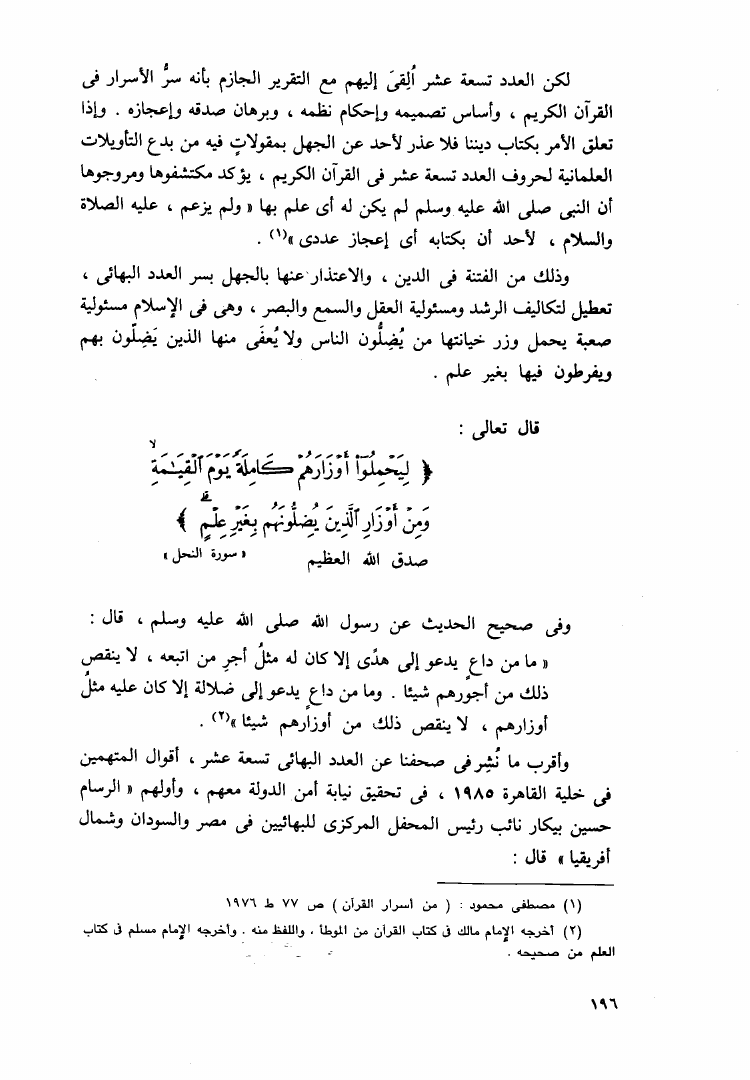 لكن العدد تسعة عشر أُلِقىَ إليهم مع التقرير الجازم بأنه سرُّ الأسرار فى
القرآن الكريم ، وأساس تصميمه وإحكام نظمه ، وبرهان صدقه وإعجازه . وإذا
تعلق الأمر بكتاب ديننا فلا عذر لأحد عن الجهل بمقولاتٍ فيه من بدع التأويلات
العلمانية لحروف العدد تسعة عشر فى القرآن الكريم ، يؤكد مكتشفوها ومروجوها
أن النبى صلى الله عليه وسلم لم يكن له أى علم بها « ولم يزعم ، عليه الصلاة
والسلام ، لأحد أن بكتابه أى إعجاز عددى »(١) .
وذلك من الفتنة فى الدين ، والاعتذار عنها بالجهل بسر العدد البهائى ،
تعطيل لتكاليف الرشد ومسئولية العقل والسمع والبصر ، وهى فى الإسلام مسئولية
صعبة يحمل وزر خيانتها من يُضِلُّون الناس ولا يُعفَى منها الذين يَضِلّون بهم
ويفرطون فيها بغير علم .
قال تعالى :
﴿ لِيَحْمِلُوٓا۟ أَوْزَارَهُمْ كَامِلَةً يَوْمَ ٱلْقِيَـٰمَةِ ۙ
وَمِنْ أَوْزَارِ ٱلَّذِينَ يُضِلُّونَهُم بِغَيْرِ عِلْمٍ ۗ ﴾
صدق الله العظيم « سورة النحل »
وفى صحيح الحديث عن رسول الله صلى الله عليه وسلم ، قال :
« ما من داعٍ يدعو إلى هدًى إلا كان له مثلُ أجرِ من اتبعه ، لا ينقص
ذلك من أجورهم شيئا . وما من داعٍ يدعو إلى ضلالة إلا كان عليه مثلُ
أوزارهم ، لا ينقص ذلك من أوزارهم شيئا »(٢) .
وأقرب ما نُشِر فى صحفنا عن العدد البهائى تسعة عشر ، أقوال المتهمين
فى خلية القاهرة ١٩٨٥ ، فى تحقيق نيابة أمن الدولة معهم ، وأولهم « الرسام
حسين بيكار نائب رئيس المحفل المركزى للبهائيين فى مصر والسودان وشمال
أفريقيا » قال :
(١) مصطفى محمود : ( من أسرار القرآن ) ص ٧٧ ط ١٩٧٦
(٢) أخرجه الإمام مالك فى كتاب القرآن من الموطأ ، واللفظ منه . وأخرجه الإمام مسلم فى كتاب
العلم من صحيحه .
١٩٦